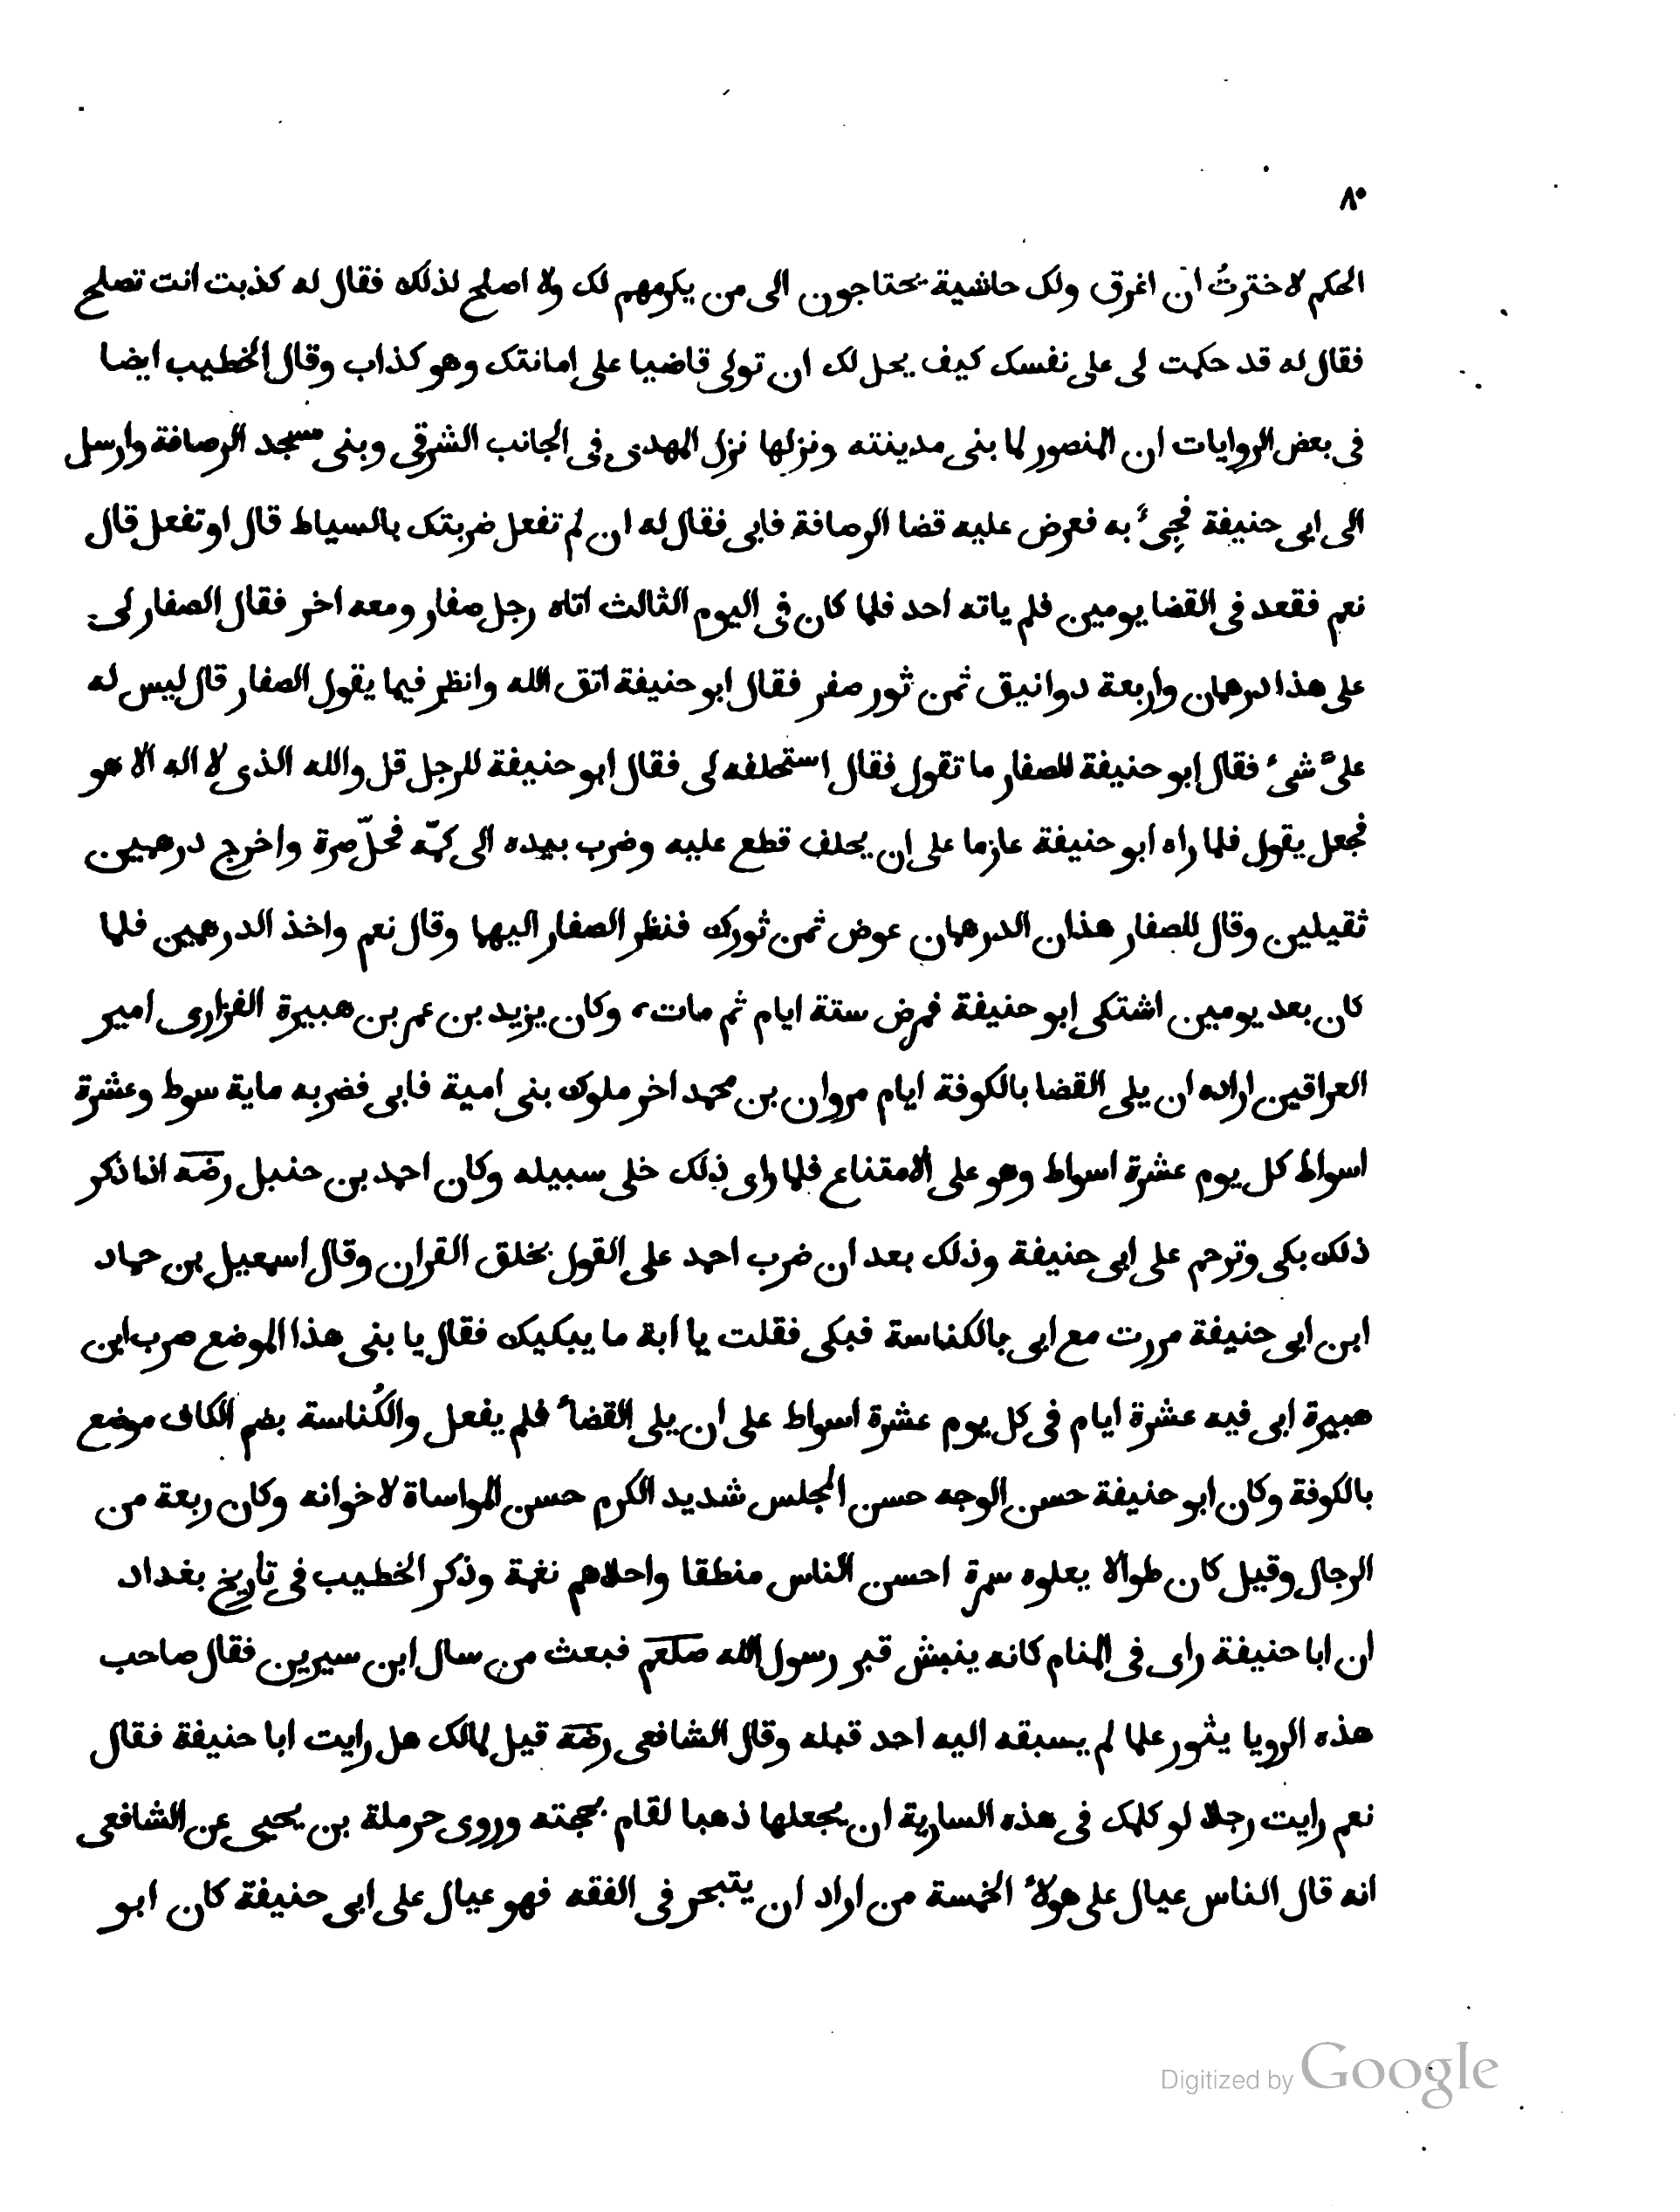 ٨٠
الحكم لاخترتُ ان اغرق ولك حاشية يحتاجون الى من يكرمهم لك ولا اصلح لذلك فقال له كذبت انت تصلح
فقال له قد حكمت لى على نفسك كيف يحل لك ان تولى قاضيا على امانتك وهو كذاب وقال الخطيب ايضا
فى بعض الروايات ان المنصور لما بنى مدينته ونزلها نزل المهدى فى الجانب الشرقى وبنى مسجد الرصافة وارسل
الى ابى حنيفة فجِىءَ به فعرض عليه قضا الرصافة فابى فقال له ان لم تفعل ضربتك بالسياط قال اوتفعل قال
نعم فقعد فى القضا يومين فلم ياته احد فلما كان فى اليوم الثالث اتاه رجل صفار ومعه اخر فقال الصفار لى
على هذا درهمان واربعة دوانيق ثمن ثور صفر فقال ابو حنيفة اتق الله وانظر فيما يقول الصفار قال ليس له
علىّ شىء فقال ابو حنيفة للصفار ما تقول فقال استحلفه لى فقال ابو حنيفة للرجل قل والله الذى لا اله الا هو
فجعل يقول فلما راه ابو حنيفة عازما على ان يحلف قطع عليه وضرب بيده الى كمّه فحلّ صرة واخرج درهمين
ثقيلين وقال للصفار هذان الدرهمان عوض ثمن ثورك فنظر الصفار اليهما وقال نعم واخذ الدرهمين فلما
كان بعد يومين اشتكى ابو حنيفة فمرض ستة ايام ثم مات، وكان يزيد بن عمر بن هبيرة الفزارى امير
العراقين اراده ان يلى القضا بالكوفة ايام مروان بن محمد اخر ملوك بنى امية فابى فضربه ماية سوط وعشرة
اسواط كل يوم عشرة اسواط وهو على الامتناع فلما راى ذلك خلى سبيله وكان احمد بن حنبل رضه اذا ذكر
ذلك بكى وترحم على ابى حنيفة وذلك بعد ان ضرب احمد على القول بخلق القران وقال اسمعيل بن حماد
ابن ابى حنيفة مررت مع ابى بالكناسة فبكى فقلت يا ابة ما يبكيك فقال يا بنى هذا الموضع صرب ابن
هبيرة ابى فيه عشرة ايام فى كل يوم عشرة اسواط على ان يلى القضاء فلم يفعل والكُناسة بضم الكاف موضع
بالكوفة وكان ابو حنيفة حسن الوجه حسن المجلس شديد الكرم حسن المواساة لاخوانه وكان ربعة من
الرجال وقيل كان طوالا يعلوه سمرة احسن الناس منطقا واحلاهم نغمة وذكر الخطيب فى تاريخ بغداد
ان ابا حنيفة راى فى المنام كانه ينبش قبر رسول الله صلعم فبعث من سال ابن سيرين فقال صاحب
هذه الرويا يثور علما لم يسبقه اليه احد قبله وقال الشافعى رضه قيل لمالك هل رايت ابا حنيفة فقال
نعم رايت رجلا لو كلمك فى هذه السارية ان يجعلها ذهبا لقام بحجته وروى حرملة بن يحيى عن الشافعى
انه قال الناس عيال على هولاء الخمسة من اراد ان يتبحر فى الفقه فهو عيال على ابى حنيفة كان ابو
Digitized by Google